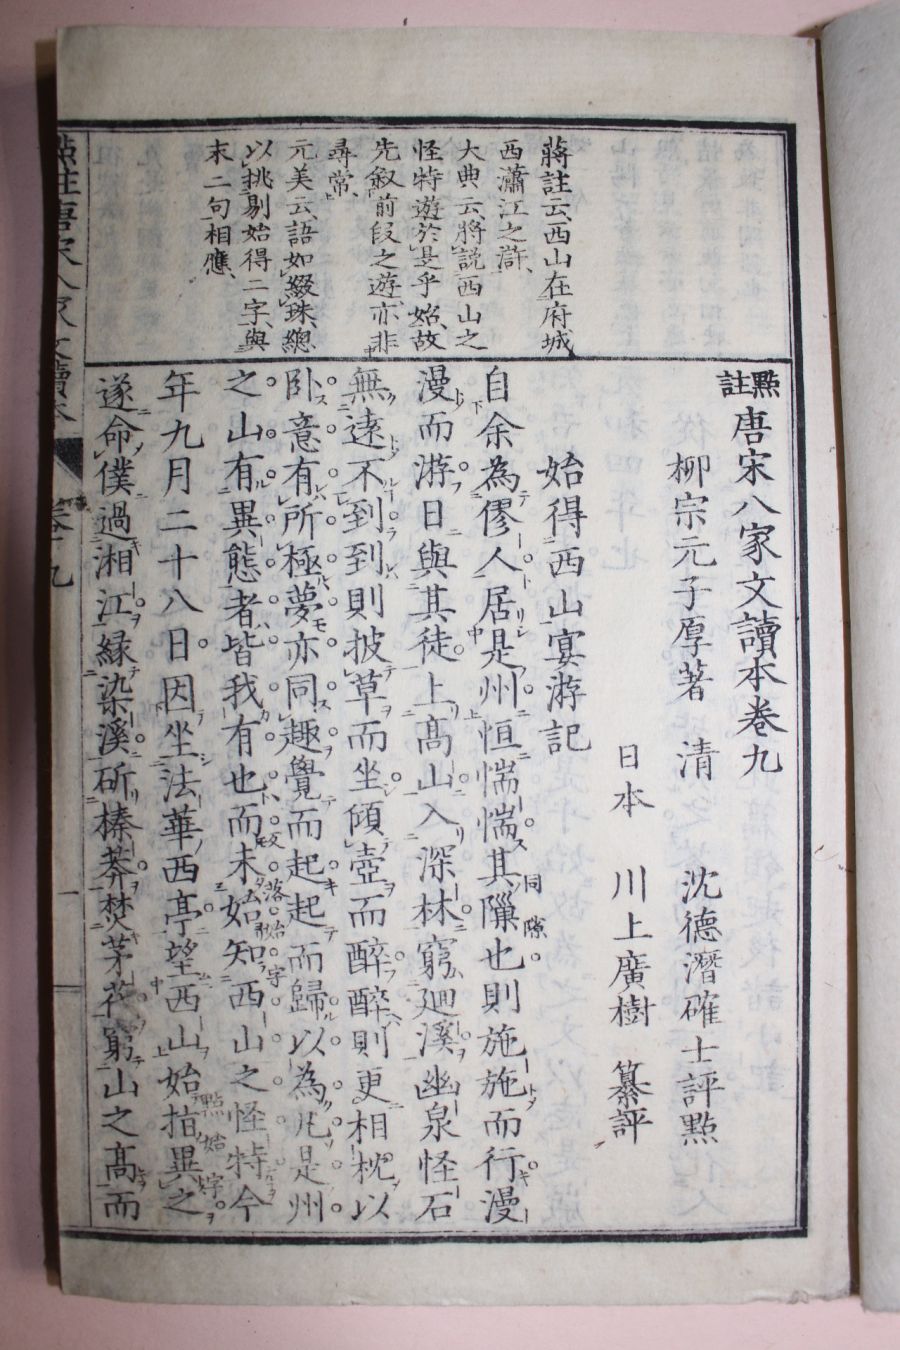 點註唐宋八家文讀本卷九
柳宗元子厚著 清 沈德潛確士評點
日本 川上廣樹 纂評
始得西山宴游記
自余為僇人居是州恒惴惴其隟也則施施而行漫
同隙
漫而游日與其徒上高山入深林窮迴溪幽泉怪石
無遠不到到則披草而坐傾壺而醉醉則更相枕以
卧意有所極夢亦同趣覺而起起而歸以為凡是州
之山有異態者皆我有也而未始知西山之怪特今
反落始字
年九月二十八日因坐法華西亭望西山始指異之
點始字
遂命僕過湘江緣染溪斫榛莽焚茅茷窮山之高而
蔣註云西山在府城
西瀟江之滸
大典云將説西山之
怪特遊於是乎始故
先叙前段之遊亦非
尋常
元美云語如綴珠總
以挑剔始得二字與
末二句相應